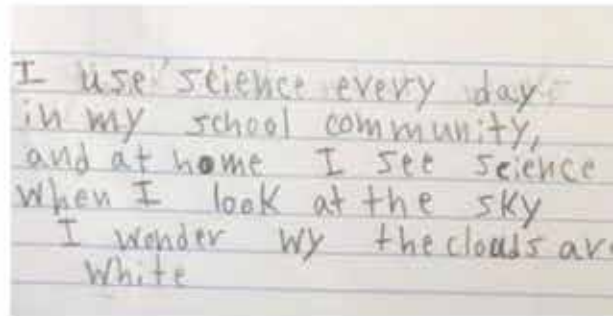 I use science every day
in my school community,
and at home I see science
when I look at the sky
I wonder wy the clouds are
white